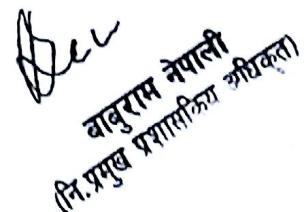 बाबुराम नेपाली
(नि.प्रमुख प्रशासकिय अधिकृत)